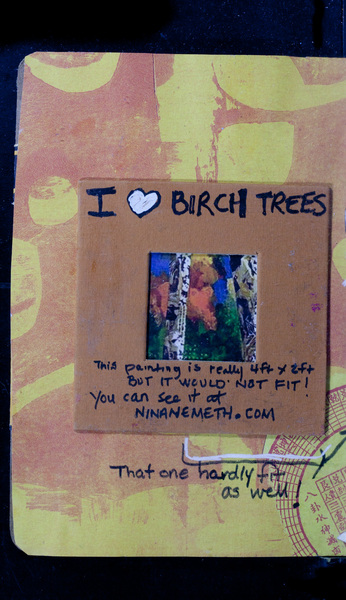 I ♡ BIRCH TREES
This painting is really 4ft x 2ft
BUT IT WOULD NOT FIT!
You can see it at
NINANEMETH.COM
That one hardly fit
as well!